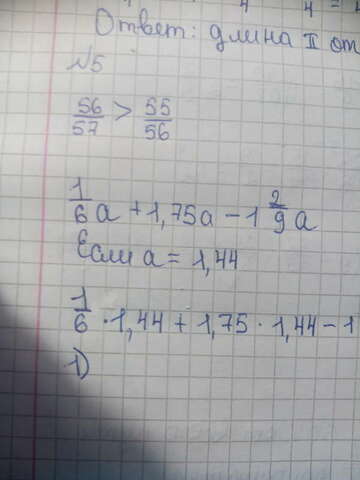 4 4 4
Ответ: длина II от
№5
56/57 > 55/56
1/6 a + 1,75a - 1 2/9 a
Если a = 1,44
1/6 · 1,44 + 1,75 · 1,44 - 1
1)